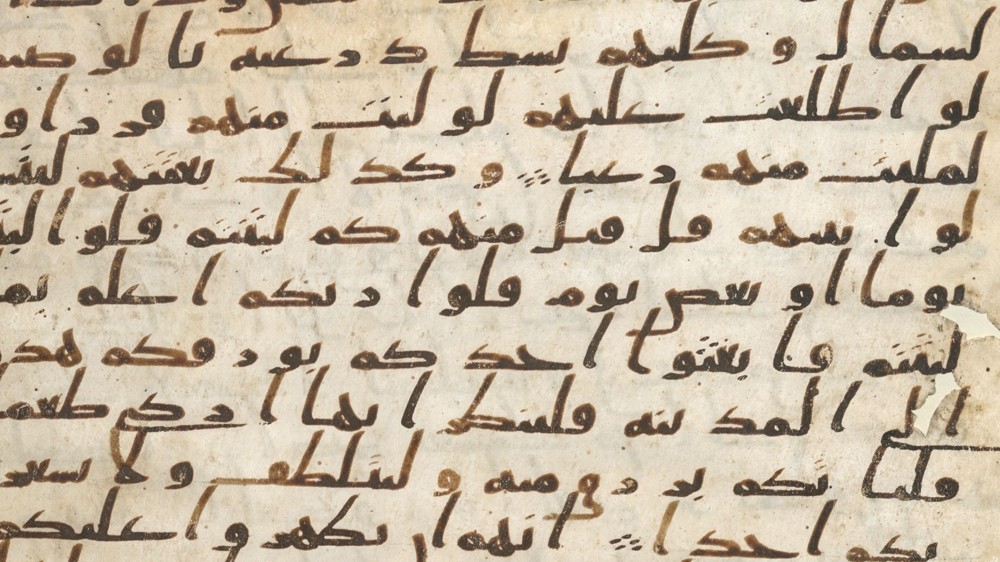 لشمال وكلبهم بسط ذرعيه بالوصيد
لو اطلعت عليهم لوليت منهم فررا و
لملئت منهم رعبا وكذلك بعثنهم ليتسا
لوا بينهم قل قيل منهم كم لبثتم قلوا لبثنا
يوما او بعض يوم قلوا ربكم اعلم بما
لبثتم فابعثوا احدكم بورقكم هذه
الى المدينه فلينظر ايها ازكى طعما
فلياتكم برزق منه وليتلطف ولا يشعرن
بكم احدا انهم ان يظهروا عليكم